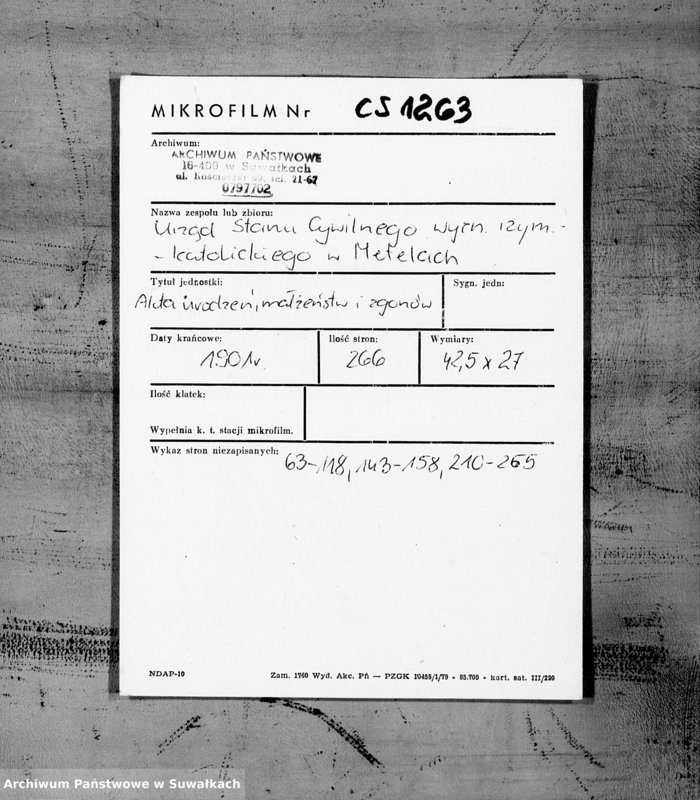 MIKROFILM Nr CS 1263
Archiwum:
ARCHIWUM PAŃSTWOWE
16-400 w Suwałkach
ul. Kościuszki 69, tel. 21-67
0797702
Nazwa zespołu lub zbioru:
Urząd Stanu Cywilnego wyzn. rzym.-
-katolickiego w Metelach
Tytuł jednostki: Sygn. jedn:
Akta urodzeń, małżeństw i zgonów
Daty krańcowe: Ilość stron: Wymiary:
1901r. 266 42,5 x 27
Ilość klatek:
Wypełnia k. t. stacji mikrofilm.
Wykaz stron niezapisanych:
63-118, 143-158, 210-265
NDAP-10 Zam. 1760 Wyd. Akc. Pń — PZGK 10455/1/79 - 85.700 - kart. sat. III/220
Archiwum Państwowe w Suwałkach